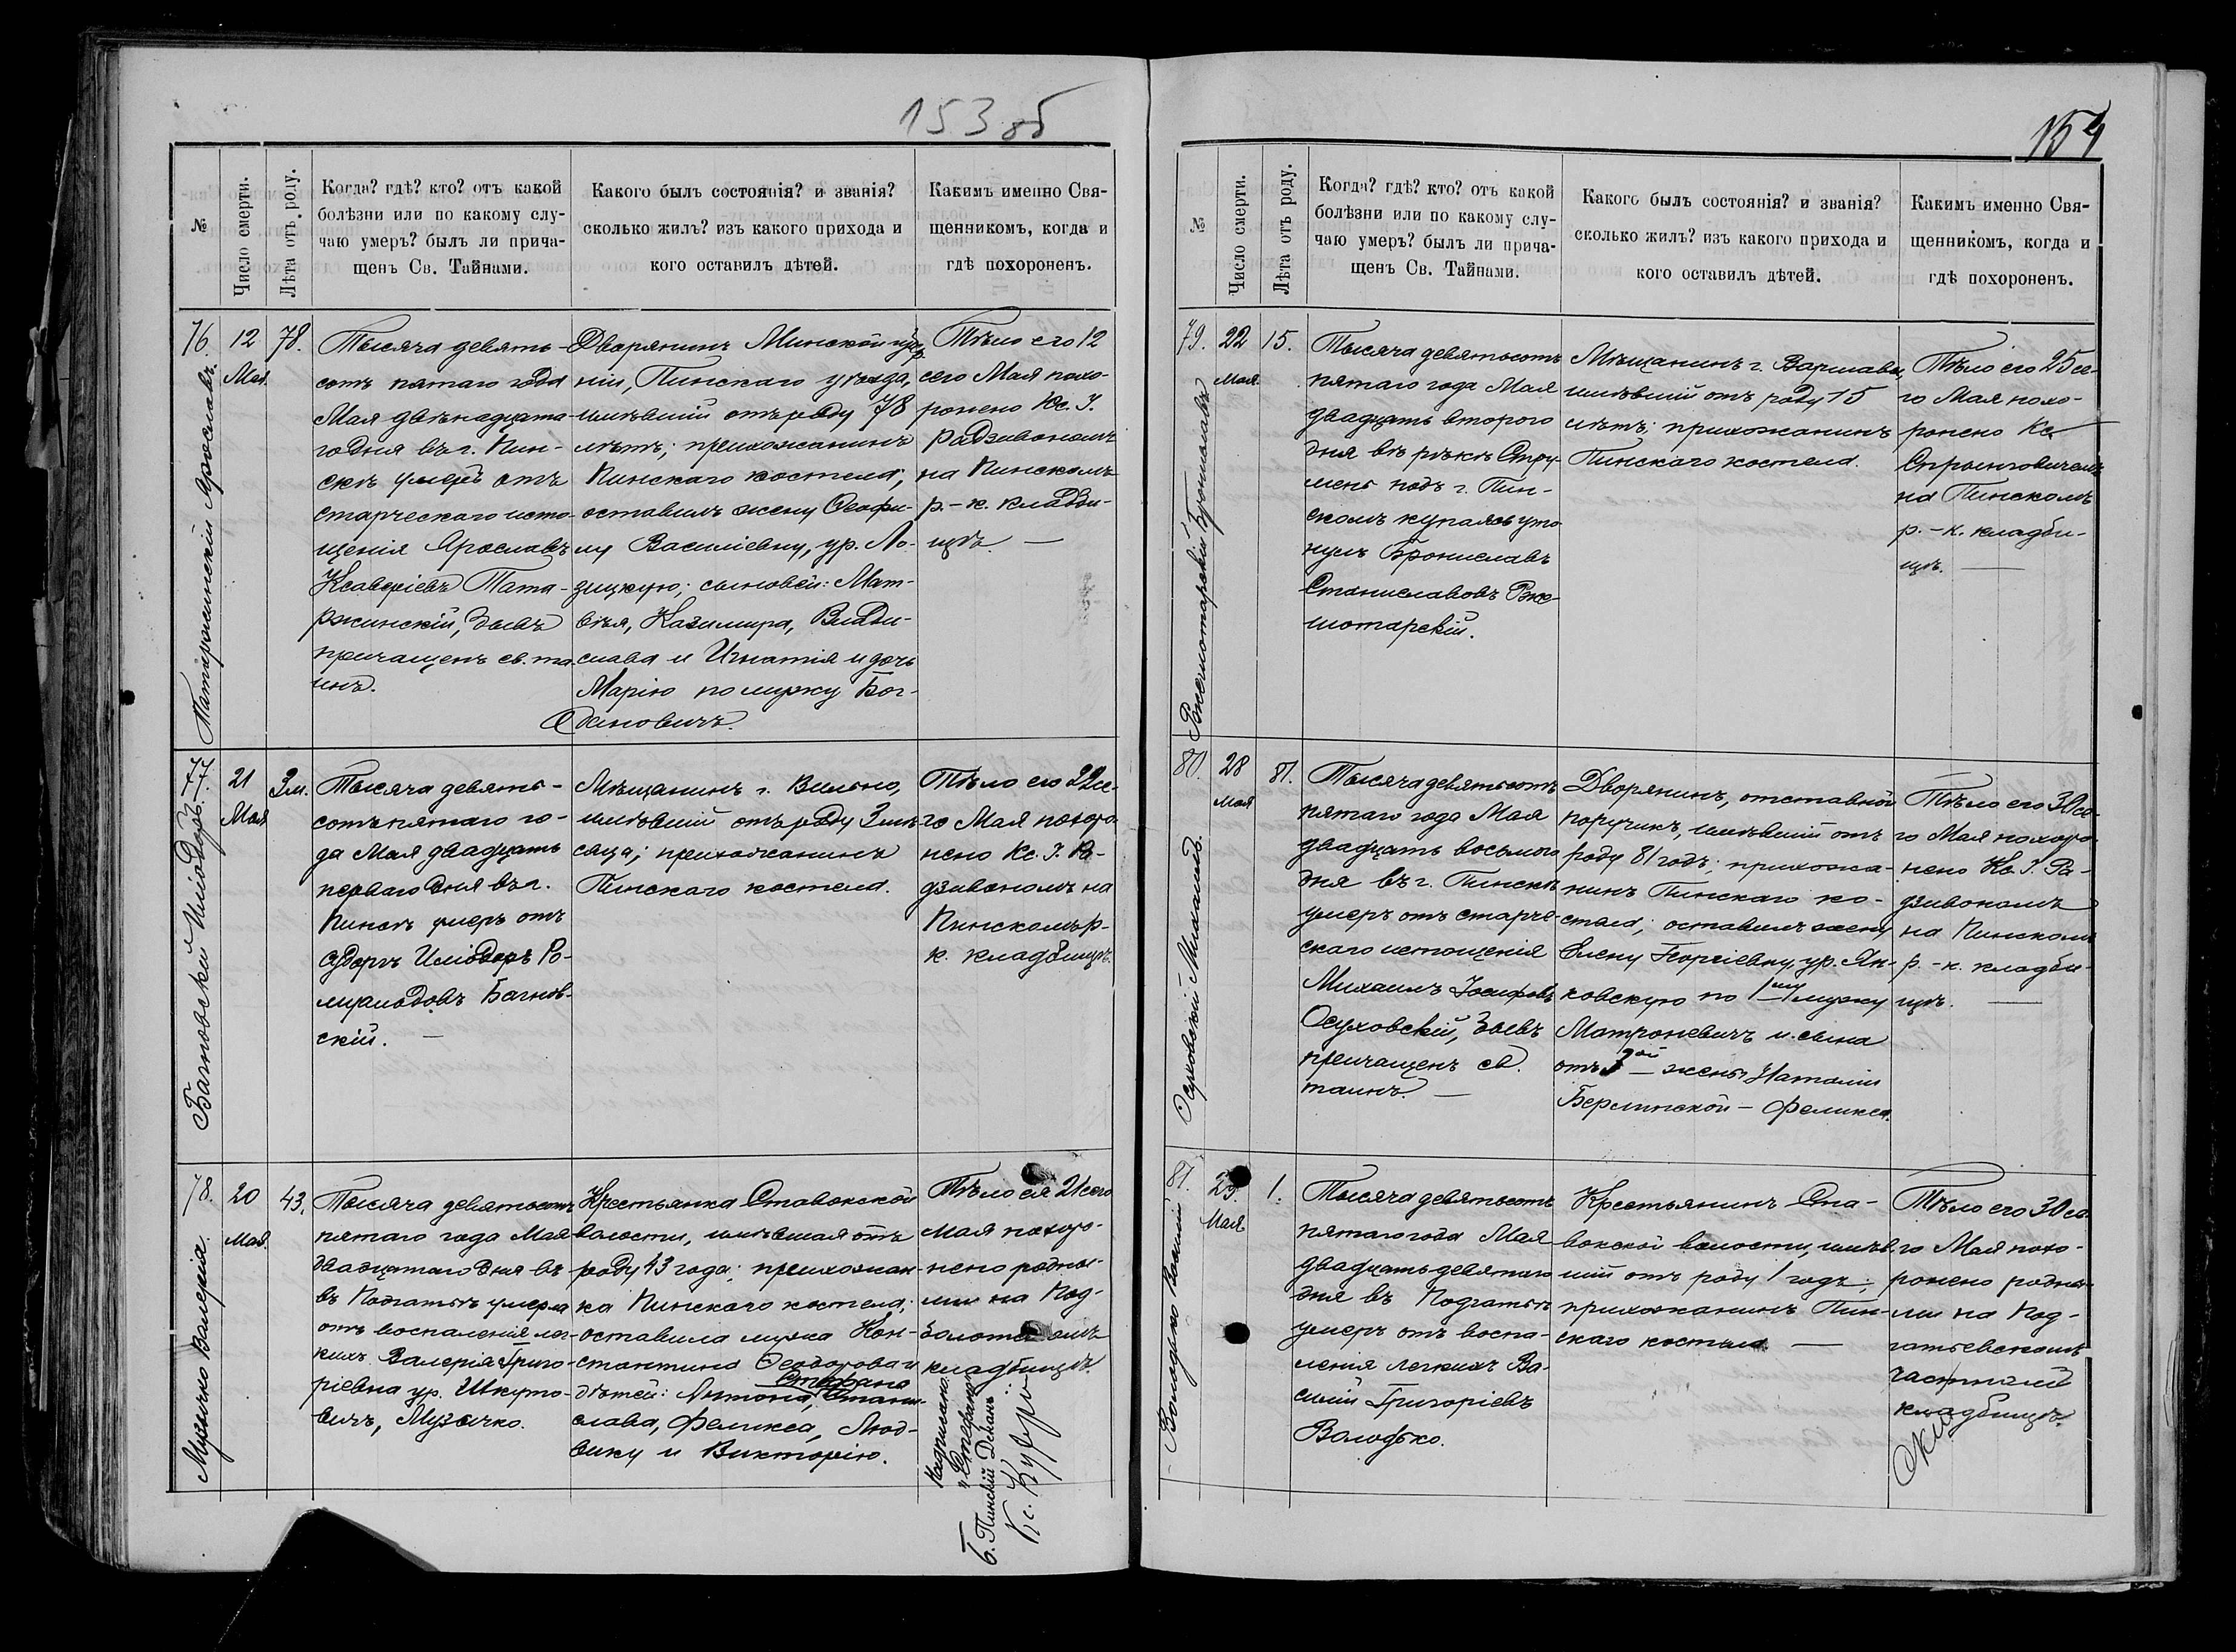 153 об
№
Число смерти.
Лѣта отъ роду.
Когда? гдѣ? кто? отъ какой
болѣзни или по какому слу-
чаю умеръ? былъ ли прича-
щенъ Св. Тайнами.
Какого былъ состоянія? и званія?
сколько жилъ? изъ какого прихода и
кого оставилъ дѣтей.
Какимъ именно Свя-
щенникомъ, когда и
гдѣ похороненъ.
76.
Ярославъ.
12
Мая.
78.
Тысяча девять-
сотъ пятаго года
Мая двѣнадцата-
го дня въ г. Пин-
скѣ умеръ отъ
старческаго исто-
щенія Ярославъ
Ксаверіевъ Пата-
ржинскій, бывъ
причащенъ св. та-
инъ.
Дворянинъ Минской губер-
ніи, Пинскаго уѣзда,
имѣвшій отъ роду 78
лѣтъ; прихожанинъ
Пинскаго костела;
оставилъ жену Ѳеофи-
лу Василіевну, ур. Ло-
зицкую; сыновей: Мат-
вѣя, Казимира, Влади-
слава и Игнатія и дочь
Марію по мужу Бог-
дановичъ.
Тѣло его 12
сего Мая похо-
ронено Кс. І.
Радзивономъ
на Пинскомъ
р.-к. кладби-
щѣ. —
77.
Багновскій Иліодоръ.
21
Мая
3 м.
Тысяча девять-
сотъ пятаго го-
да Мая двадцать
перваго дня въ г.
Пинскѣ умеръ отъ
Иліодоръ Ро-
муальдовъ Багнов-
скій. —
Мѣщанинъ г. Вильно,
имѣвшій отъ роду 3 мѣ-
сяца; прихожанинъ
Пинскаго костела.
Тѣло его 22 се-
го Мая похоро-
нено Кс. І. Ра-
дзивономъ на
Пинскомъ р.-
к. кладбищѣ.
78.
Музычко Валерія.
20
Мая.
43.
Тысяча девятьсотъ
пятаго года Мая
двадцатаго дня въ
въ Подгатьѣ умерла
отъ воспаленія лег-
кихъ Валерія Григо-
ріевна ур. Шкуто-
вичъ, Музычко.
Крестьянка Ставокской
волости, имѣвшая отъ
роду 43 года; прихожан-
ка Пинскаго костела;
оставила мужа Кон-
стантина Ѳеодорова и
Стефана
дѣтей: Антона, Стани-
слава, Феликса, Люд-
вику и Викторію.
Тѣло ея 21 сего
Мая похоро-
нено родны-
ми на Под-
кладбищѣ.
Надписано:
"Стефана"
б. Пинскій Деканъ
Кс.
154
№
Число смерти.
Лѣта отъ роду.
Когда? гдѣ? кто? отъ какой
болѣзни или по какому слу-
чаю умеръ? былъ ли прича-
щенъ Св. Тайнами.
Какого былъ состоянія? и званія?
сколько жилъ? изъ какого прихода и
кого оставилъ дѣтей.
Какимъ именно Свя-
щенникомъ, когда и
гдѣ похороненъ.
79.
Брониславъ.
22
Мая.
15.
Тысяча девятьсотъ
пятаго года Мая
двадцать второго
дня въ рѣкѣ Стру-
мень подъ г. Пин-
скомъ купаясь уто-
нулъ Брониславъ
Станиславовъ Рже-
шотарскій.
Мѣщанинъ г. Варшавы,
имѣвшій отъ роду 15
лѣтъ; прихожанинъ
Пинскаго костела.
Тѣло его 25 се-
го Мая похо-
ронено Кс.
на Пинскомъ
р.-к. кладби-
щѣ. —
80.
Осуховскій Михаилъ.
28
Мая
81.
Тысяча девятьсотъ
пятаго года Мая
двадцать восьмого
дня въ г. Пинскѣ
умеръ отъ старче-
скаго истощенія
Михаилъ Іосифовъ
Осуховскій, бывъ
причащенъ св.
таинъ. —
Дворянинъ, отставной
поручикъ, имѣвшій отъ
роду 81 годъ; прихожа-
нинъ Пинскаго ко-
стела; оставилъ жену
Елену Георгіевну, ур. Ян-
ковскую по 1му мужу
Матроневичъ и сына
отъ жены Наталіи
Берлинской — Феликса.
Тѣло его 30 се-
го Мая похоро-
нено Кс. І. Ра-
дзивономъ
на Пинскомъ
р.-к. кладби-
щѣ. —
81.
Володько Василій.
29.
Мая
1.
Тысяча девятьсотъ
пятаго года Мая
двадцать девятаго
дня въ Подгатьѣ
умеръ отъ воспа-
ленія легкихъ Ва-
силій Григоріевъ
Володько.
Крестьянинъ Ста-
вокской волости, имѣв-
шій отъ роду 1 годъ;
прихожанинъ Пин-
скаго костела. —
Тѣло его 30 се-
го Мая похо-
ронено родны-
ми на Под-
гатьевскомъ
частномъ
кладбищѣ.